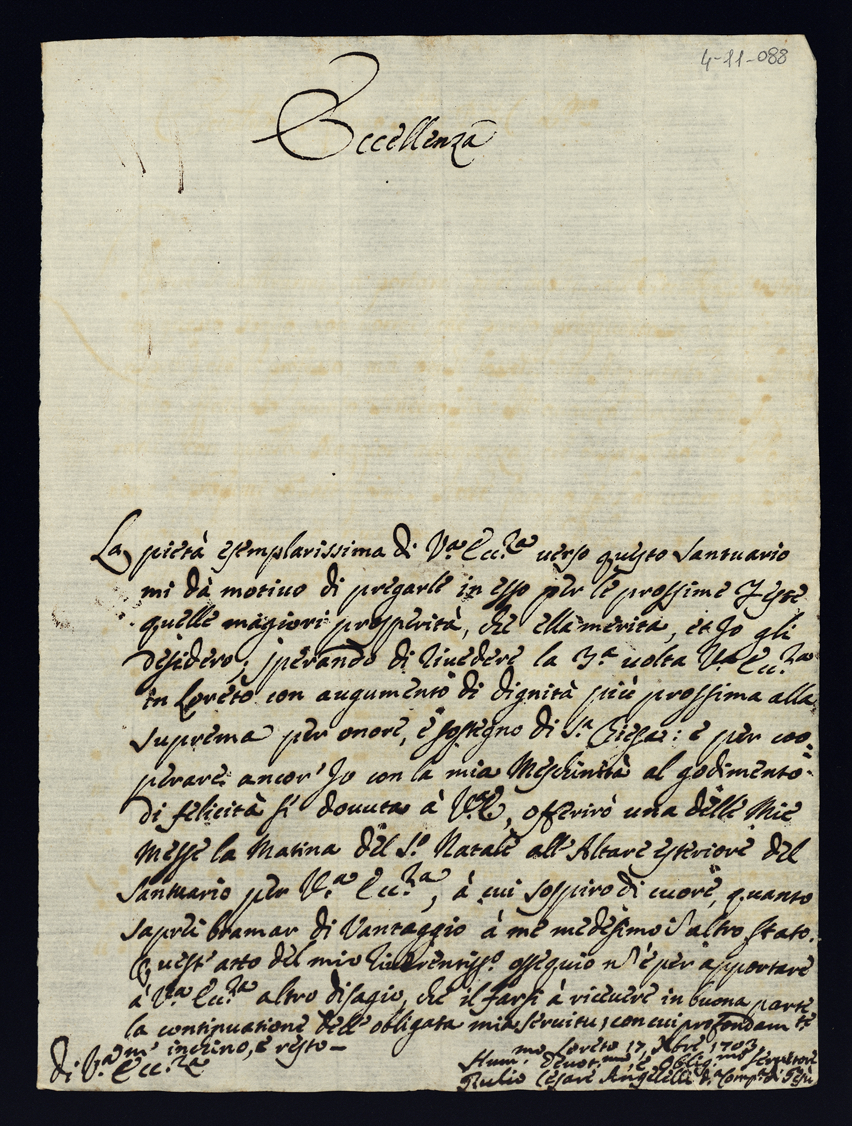 4-11-088
Eccellenza
La pietà esemplarissima di V.ª Ecc.za verso questo Santuario
mi dà motivo di pregarle in esso per le prossime Feste
quelle magiori prosperità, che ella merita, et Io gli
desidero; sperando di rivedere la 3.ª volta V.ª Ecc.za
in Loreto con augumento di dignità più prossima alla
suprema per onore, e sostegno di S.ª Chiesa: e per coo-
perare ancor' Io con la mia Meschinità al godimento
di felicità sì dovuta à V.E., offerirò una delle Mie
Messe la Matina del S.º Natale all'Altare esteriore del
Santuario per V.ª Ecc.za, à cui sospiro di cuore, quanto
saprei bramar di Vantaggio à me medesimo altro stato.
Quest'atto del mio riverentiss.º ossequio n è per apportare
à V.ª Ecc.za altro disagio, che il farsi à ricevere in buona parte
la continuatione dell'obligata mia servitù; con cui profondam.te
m' inchino, e resto—
di V.ª Ecc.za
Loreto 17 Xbre 1703
Hum.mo Devot.mo e Oblig.mo Servitore
Giulio Cesare Angelelli d.ª Comp.ª di Giesù